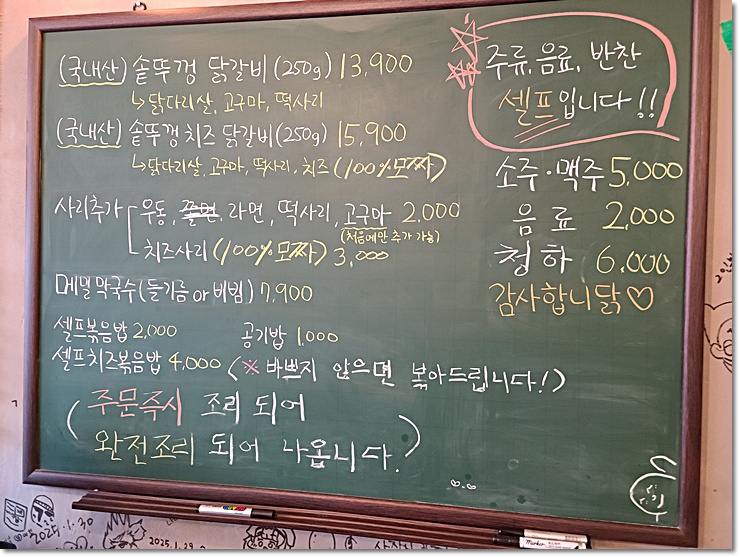 (국내산) 솥뚜껑 닭갈비 (250g) 13,900
↳ 닭다리살, 고구마, 떡사리
(국내산) 솥뚜껑 치즈 닭갈비 (250g) 15,900
↳ 닭다리살, 고구마, 떡사리, 치즈 (100% 모짜)
사리추가 우동, 쫄면, 라면, 떡사리, 고구마 2,000
(처음에만 추가 가능)
치즈사리 (100% 모짜) 3,000
메밀 막국수 (들기름 or 비빔) 7,900
셀프볶음밥 2,000 공기밥 1,000
셀프치즈볶음밥 4,000 (※ 바쁘지 않으면 볶아드립니다!)
(주문즉시 조리 되어
완전조리 되어 나옵니다.)
주류, 음료, 반찬
셀프입니다!!
소주·맥주 5,000
음료 2,000
청하 6,000
감사합니닭♡
2025.1.30
2025.1.29
Marker